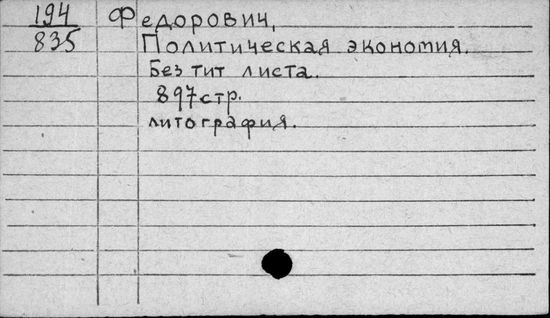 194 Федорович,
835 Политическая экономия.
Без тит листа.
897 стр.
литография.